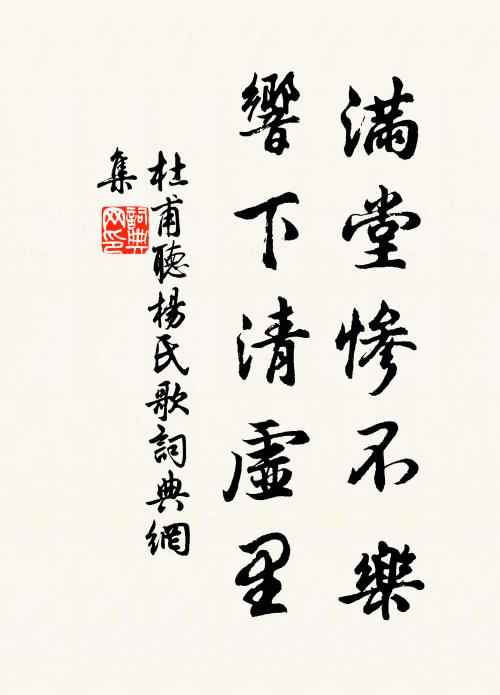 滿堂慘不樂
響下清虛里
杜甫聽楊氏歌詞典網
集
詞典网印